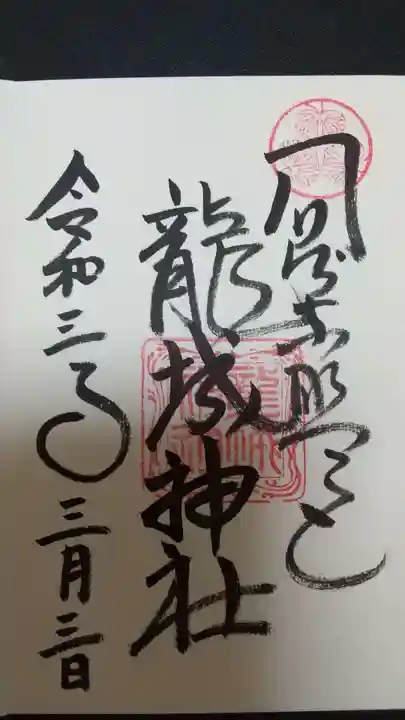 岡崎東照宮
龍城神社
令和三年三月三日